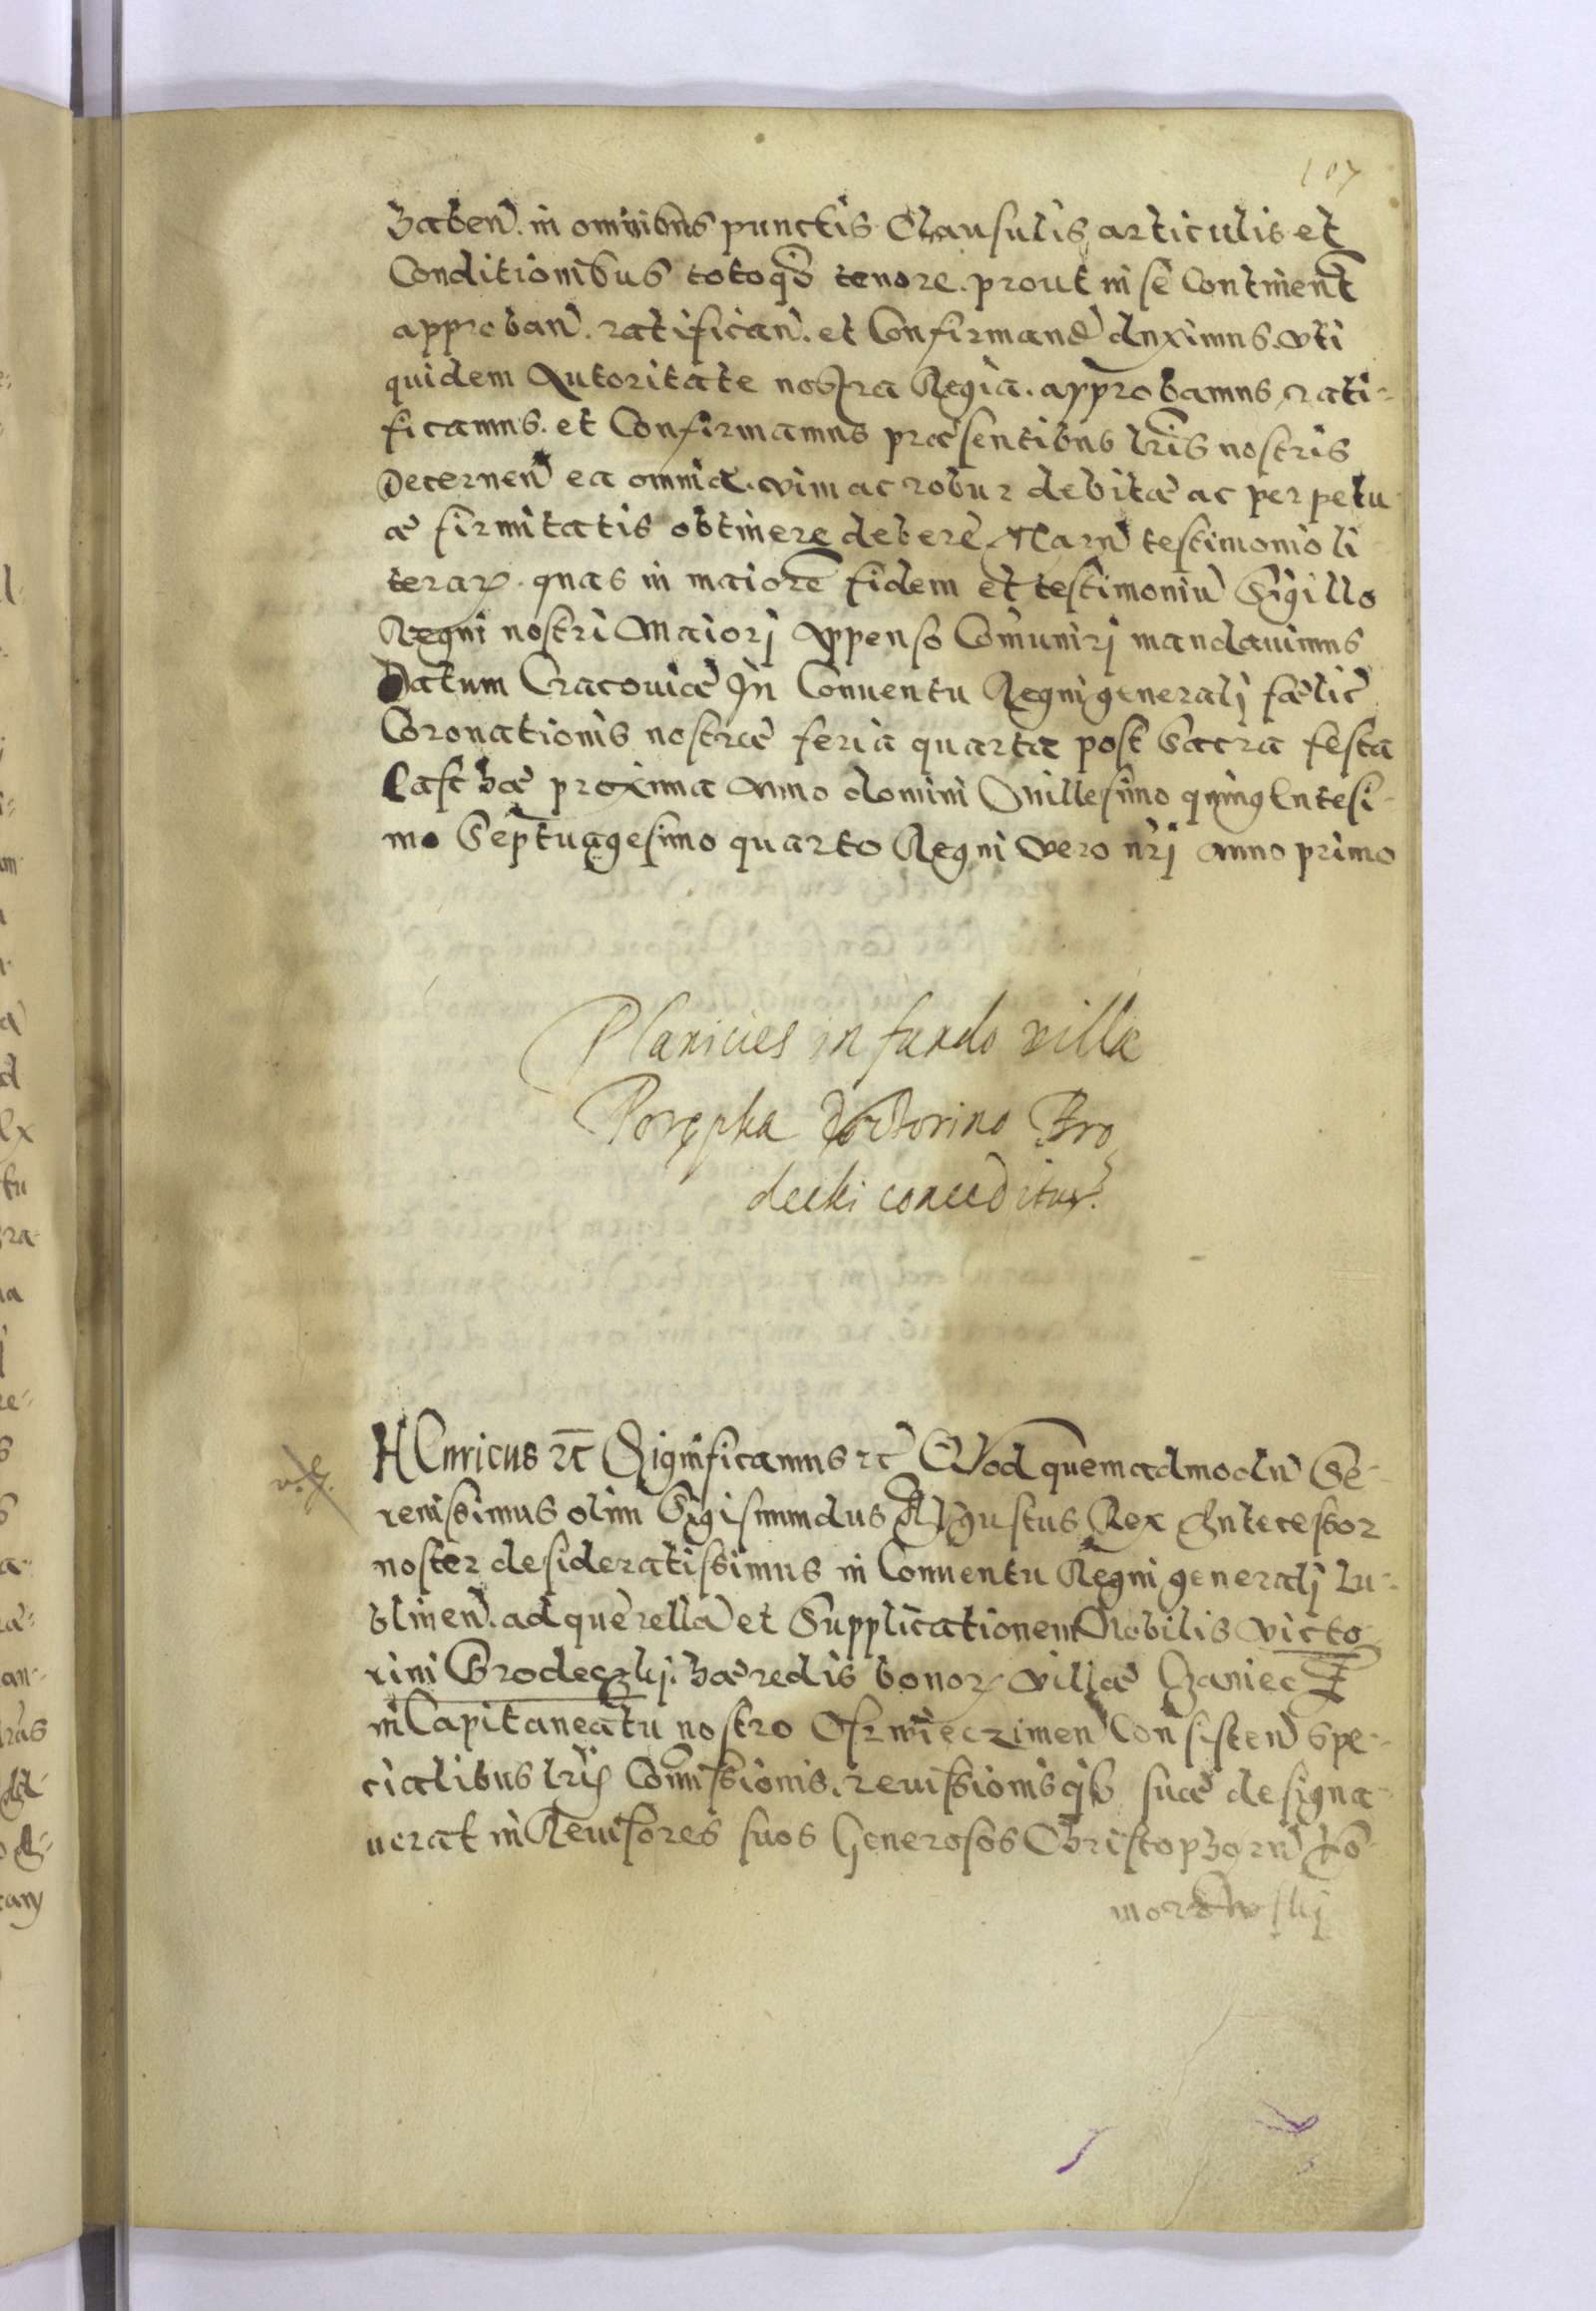 107
haben̄. in omnibus punctis Clausulis articulis et
Conditionibus totoq̄ȝ tenore. prout in se Continent̄
approban̄. ratifican̄. et Confirmand̄ duximus. vti
quidem Autoritate nostra Regia. approbamus rati-
ficamus. et Confirmamus præsentibus lrīs nostris
Decernen̄ ea omnia. vim ac robur debitæ ac perpetu
æ firmitatis obtinere debere. Harū testimonio li
terarꝝ. quas in maiorē fidem et testimoniū Sigillo
Regni nostri Maiorj Appenso Com̄unirj mandauimus
Datum Cracouiæ In Conuentu Regni generalj fælic̄
Coronationis nostræ feria quarta post Sacra festa
Paschæ proxima Anno domini Millesimo quingentesi-
mo Septuagesimo quarto Regni vero nr̄j anno primo
Planicies in fundo villæ
Porępba Victorino Bro
decki conceditur.
HEnricus etc̄ Significamus etc̄ QVod quemadmodū Se-
renissimus olim Sigismundus AVgustus Rex Antecessor
noster desideratissimus in Conuentu Regni generalj Lu-
blinen̄. ad querellā et Supplicationem Nobilis Victo
rini Brodeczkj. hæredis bonorꝝ villæ Czaniec
in Capitaneatu nostro Osswieczimen̄ Consisten̄ spe-
cialibus lrīs Com̄issionis. reuissionisq̄ȝ suæ designa-
uerat in Reuisores suos Generosos Christophorū Ko-
morowskj